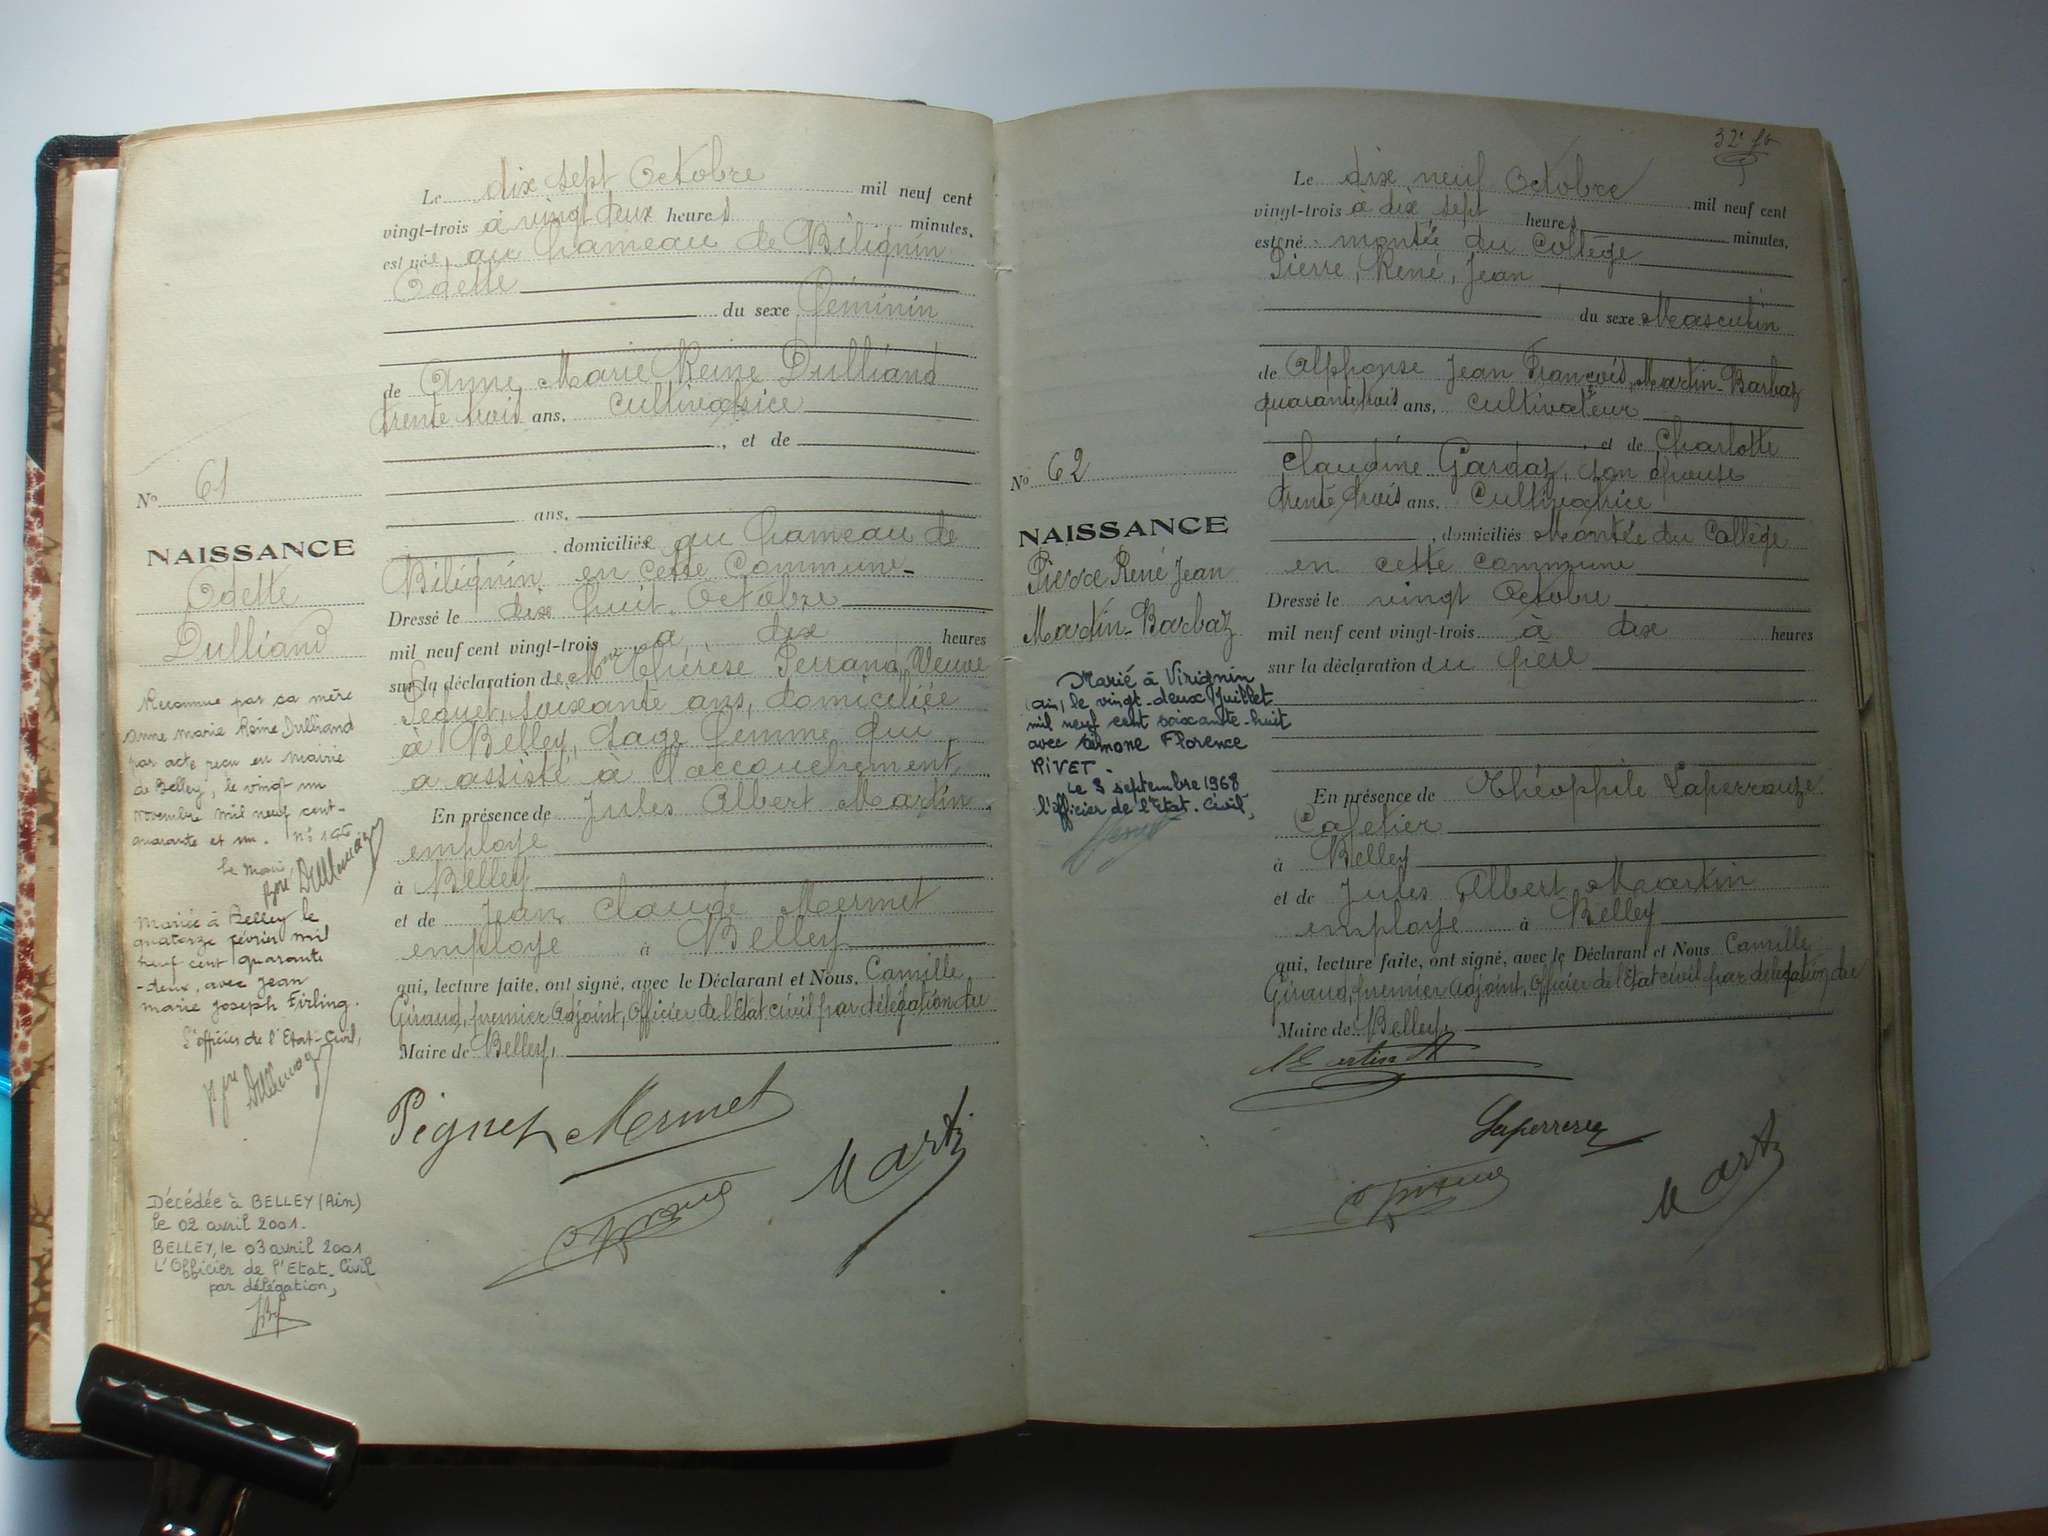 Le dix sept Octobre mil neuf cent
vingt-trois à vingt deux heures minutes,
est née, au hameau de Bilignin
Odette
du sexe Féminin
de Anne Marie Reine Dulliand
trente trois ans, cultivatrice
, et de
ans,
, domiciliée au hameau de
Bilignin en cette Commune
Dressé le dix huit Octobre
mil neuf cent vingt-trois à dix heures
sur la déclaration de Mme Thérèse Perrand, Veuve
Pequet, soixante ans, domiciliée
à Belley, Sage femme qui
a assisté à l'accouchement
En présence de Jules Albert Martin
employé
à Belley
et de Jean Claude Mermet
employé à Belley
qui, lecture faite, ont signé, avec le Déclarant et Nous, Camille
Giraud, premier Adjoint, Officier de l'Etat civil par délégation du
Maire de Belley,
Mermet
Martin
No 61
NAISSANCE
Odette
Dulliand
Reconnue par sa mère
Anne Marie Reine Dulliand
par acte reçu en Mairie
de Belley, le vingt un
Novembre mil neuf cent-
quarante et un.
Le Maire
Mariée à Belley le
quatorze février mil
neuf cent quarante
-deux, avec Jean
marie Joseph Firling.
L'officier de l'Etat-Civil,
Décédée à BELLEY (Ain)
le 02 avril 2001.
BELLEY, le 03 avril 2001
L'Officier de l'Etat-Civil
par délégation,
32e fo
Le dix neuf Octobre mil neuf cent
vingt-trois à dix sept heures minutes,
est né montée du Collège
Pierre, René, Jean
du sexe Masculin
de Alphonse Jean François, Martin-Barbaz
quarante trois ans, cultivateur
, et de Charlotte
Claudine Gardaz, son épouse
trente trois ans, Cultivatrice
, domiciliés Montée du Collège
en cette commune
Dressé le vingt Octobre
mil neuf cent vingt-trois à dix heures
sur la déclaration du père
En présence de Théophile Laperrouze
Cafetier
à Belley
et de Jules Albert Martin
employé à Belley
qui, lecture faite, ont signé, avec le Déclarant et Nous Camille
Giraud, premier Adjoint, Officier de l'Etat civil par délégation du
Maire de Belley,
Martin
No 62
NAISSANCE
Pierre René Jean
Martin-Barbaz
Marié à Virignin
(Ain) le vingt-deux Juillet
mil neuf cent soixante-huit
avec Simone Florence
RIVET.
Le 3 septembre 1968
l'officier de l'Etat-Civil,